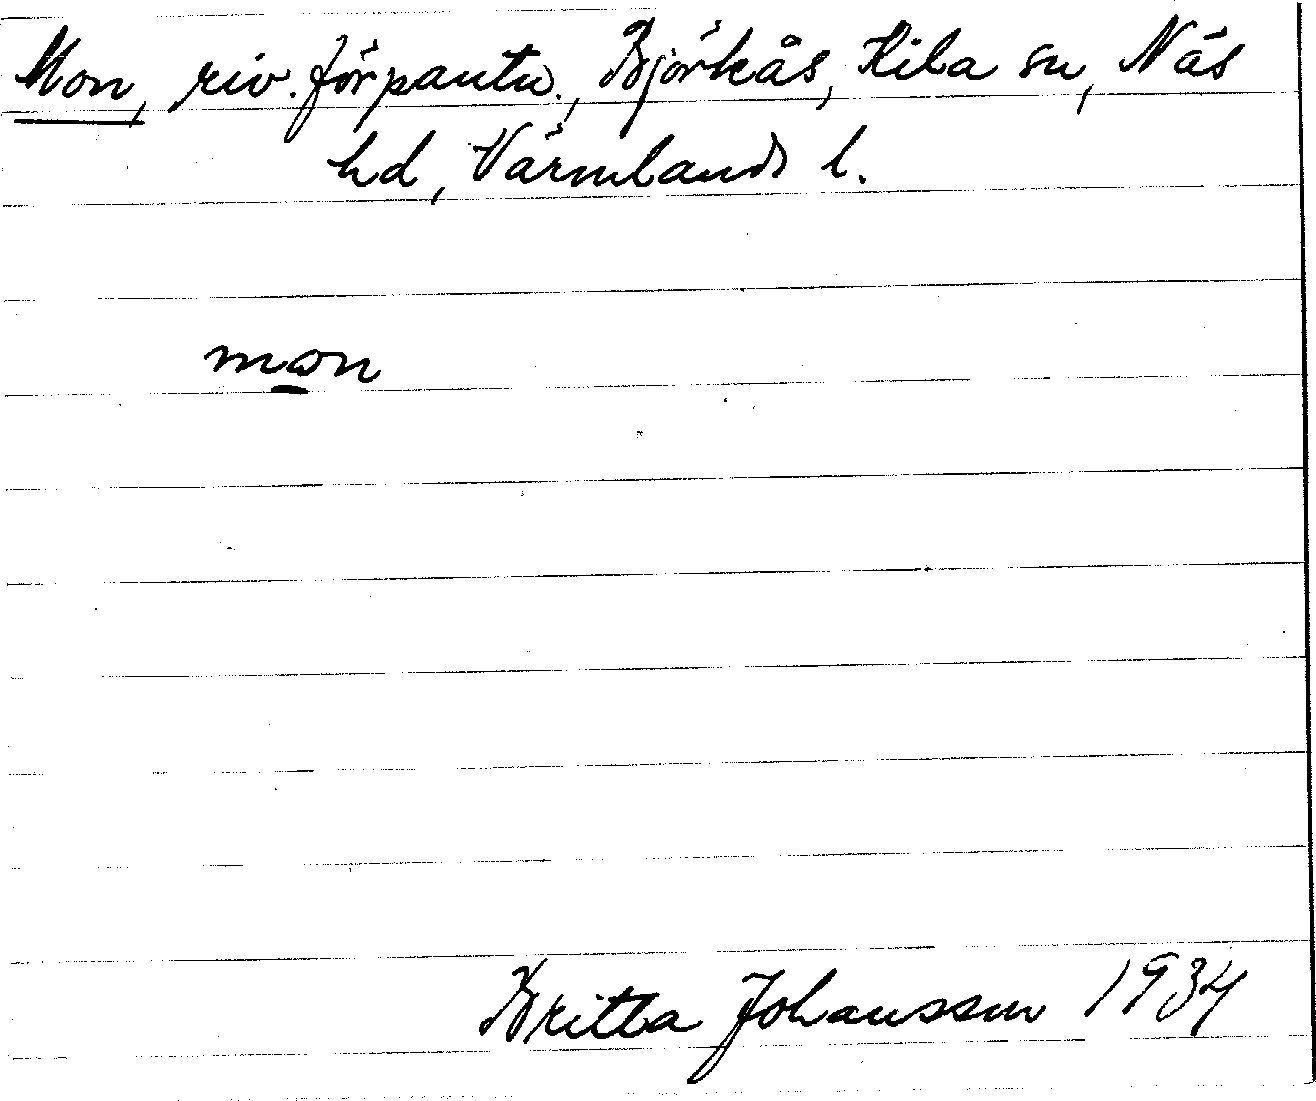 Mon, riv. förpantn., Björkås, Kila sn, Näs
hd, Värmlands l.
mon
Britta Johansson 1934